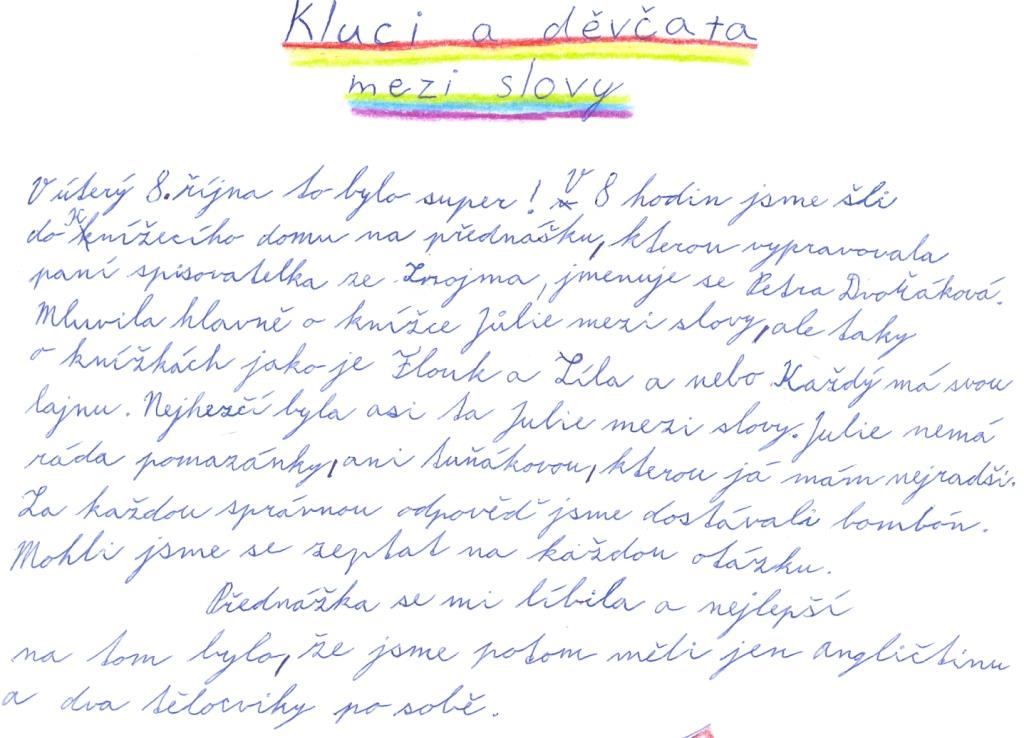 Kluci a děvčata
mezi slovy
V úterý 8. října to bylo super! V 8 hodin jsme šli
do Knížecího domu na přednášku, kterou vypravovala
paní spisovatelka ze Znojma, jmenuje se Petra Dvořáková.
Mluvila hlavně o knížce Júlie mezi slovy, ale taky
o knížkách jako je Flouk a Líla a nebo Každý má svou
lajnu. Nejhezčí byla asi ta Julie mezi slovy. Julie nemá
ráda pomazánky, ani tuňákovou, kterou já mám nejradši.
Za každou správnou odpověď jsme dostávali bombón.
Mohli jsme se zeptat na každou otázku.
Přednážka se mi líbila a nejlepší
na tom bylo, že jsme potom měli jen angličtinu
a dva tělocviky po sobě.